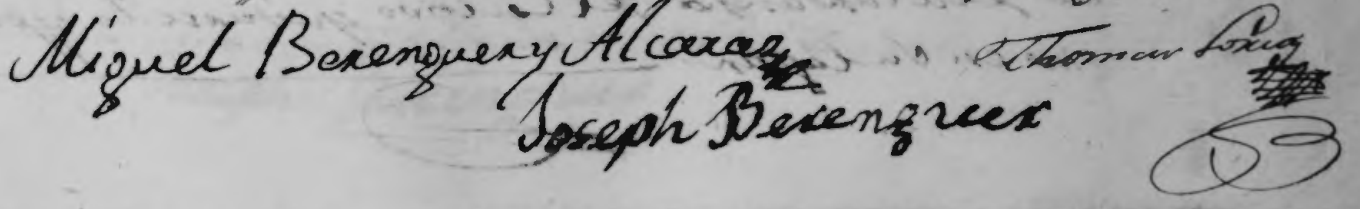 Miguel Berenguer y Alcaraz Thomas
Joseph Berenguer